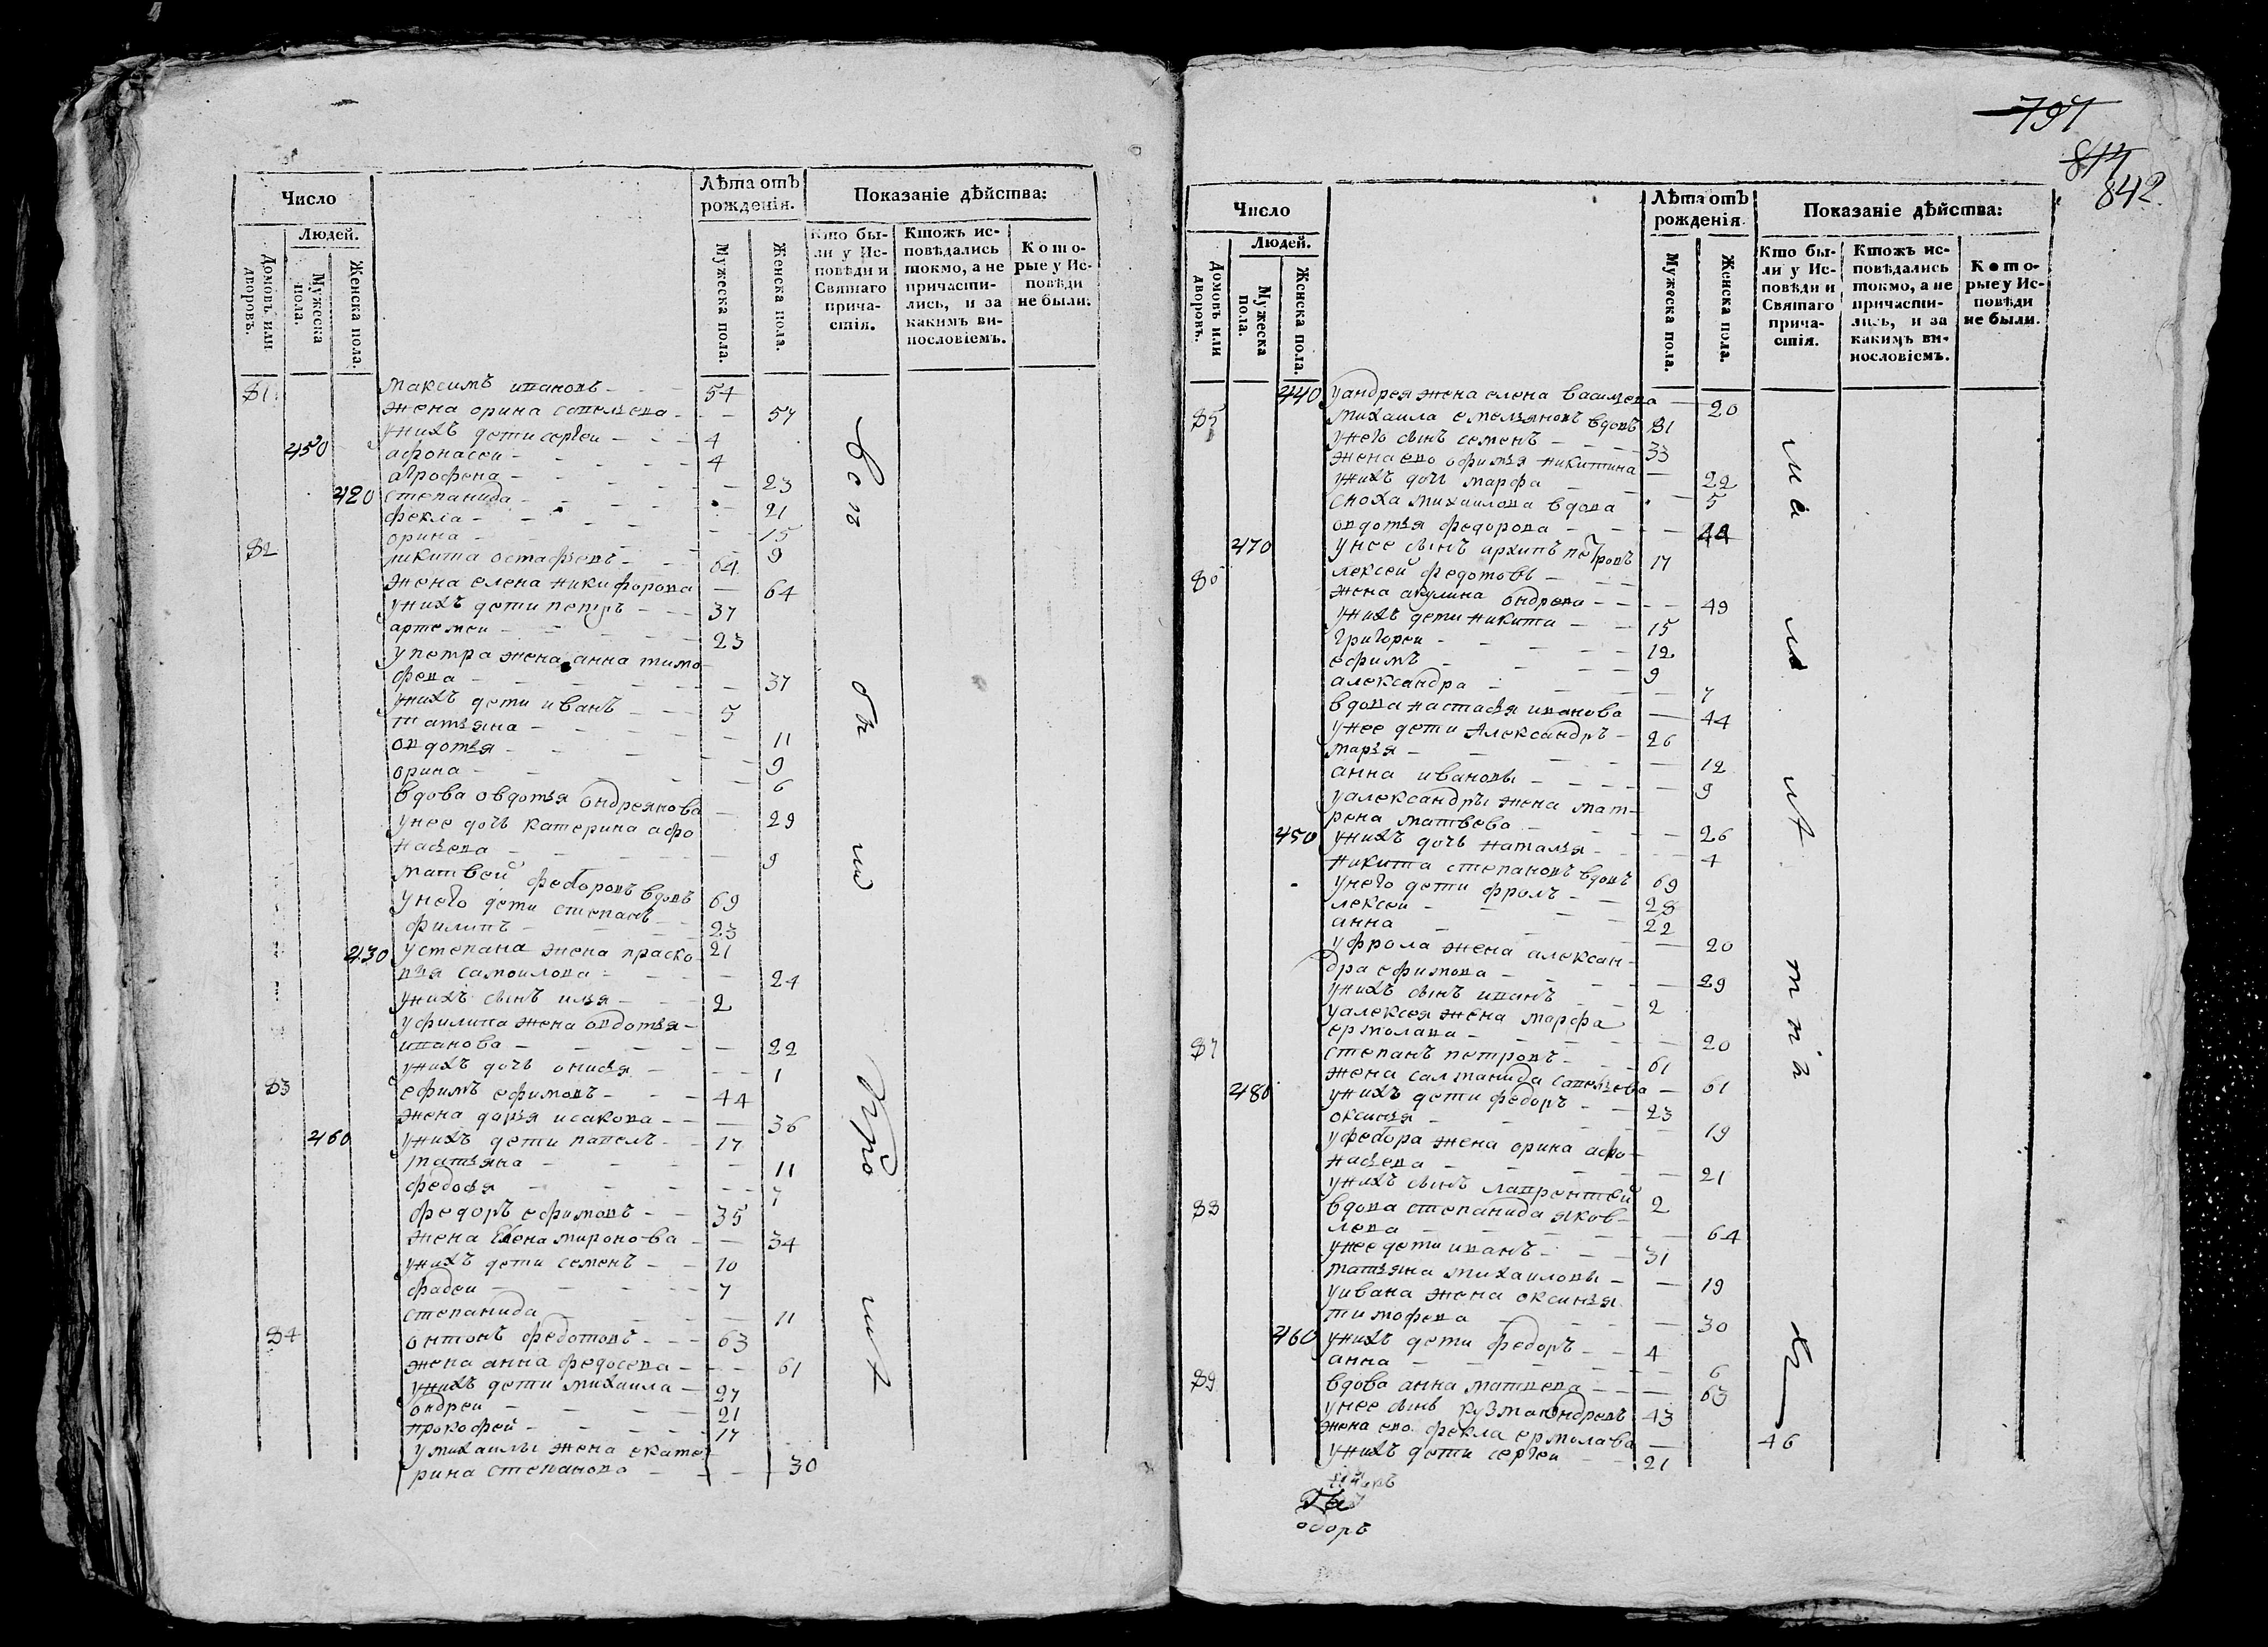 Число
Людей.
Домовъ или дворовъ.
Мужеска пола.
Женска пола.
Лѣта отъ рожденія.
Мужеска пола.
Женска пола.
Показаніе дѣйства:
Кто бы-
ли у Ис-
повѣди и
Святаго
прича-
стія.
Ктожъ ис-
повѣдались
токмо, а не
причасти-
лись, и за
какимъ ви-
нословіемъ.
Кото-
рые у Ис-
повѣди
не были.
81 максимъ ивановъ 54
жена орина савельева 57
у нихъ дети сергеи 4
450 афонасеи 4
агрофена 23
420 степанида 21
фекла 15
орина 9
82 никита остафьевъ 64
жена елена никифорова 64
у нихъ дети петръ 37
артемеи 23
у петра жена анна тимо
фева 37
у нихъ дети иванъ 5
татьяна 11
овдотья 9
орина 6
вдова овдотья ондреянова 29
у нее дочь катерина афо
насьева 9
матвей федоровъ вдовъ 69
у него дети степанъ 23
филипъ 21
430 у степана жена праско
вья самоилова 24
у нихъ сынъ илья 2
у филипа жена овдотья
иванова 22
у нихъ дочь онисья 1
83 ефимъ ефимовъ 44
жена дарья исакова 36
460 у нихъ дети павелъ 17
татьяна 11
федосья 7
федоръ ефимовъ 35
жена елена миронова 34
у нихъ дети семенъ 10
фадеи 7
степанида 11
84 онтонъ федотовъ 63
жена анна федосева 61
у нихъ дети михаила 27
ондреи 21
прокофей 17
у михаилы жена екате
рина степанова 30
797
817
842
Число
Людей.
Домовъ или дворовъ.
Мужеска пола.
Женска пола.
Лѣта отъ рожденія.
Мужеска пола.
Женска пола.
Показаніе дѣйства:
Кто бы-
ли у Ис-
повѣди и
Святаго
прича-
стія.
Ктожъ ис-
повѣдались
токмо, а не
причасти-
лись, и за
какимъ ви-
нословіемъ.
Кото-
рые у Ис-
повѣди
не были.
440 у андрея жена елена васильева 20
85 михаила емельяновъ вдовъ 81
у него сынъ семенъ 33
жена ево офимья никитина 22
у нихъ дочь марфа 5
сноха михаилова вдова
овдотья федорова 44
470 у нее сынъ архипъ петровъ 17
86 лексей федотовъ
жена акулина ондрева 49
у нихъ дети никита 15
григореи 12
ефимъ 9
александра 7
вдова настасья иванова 44
у нее дети Александръ 26
марья 12
анна ивановы 9
у александры жена мат-
рена матвева 26
450 у нихъ дочь наталья 4
никита степановъ вдовъ 69
у него дети фролъ 28
лексеи 22
анна 20
у фрола жена алексан-
дра ефимова 29
у нихъ сынъ иванъ 2
у алексея жена марфа
ермолава 20
87 степанъ петровъ 61
жена салманида савельева 61
480 у нихъ дети федоръ 23
оксинья 19
у федора жена орина афо-
насьева 21
у нихъ сынъ лаврентей 2
88 вдова степанида яков-
лева 64
у нее дети иванъ 31
татьяна михаиловы 19
у ивана жена оксинья
тимофева 30
460 у нихъ дети федоръ 4
анна 6
89 вдова анна матвева 63
у нее сынъ кузма ондревъ 43
жена ево фекла ермолава 46
у нихъ дети сергеи 21